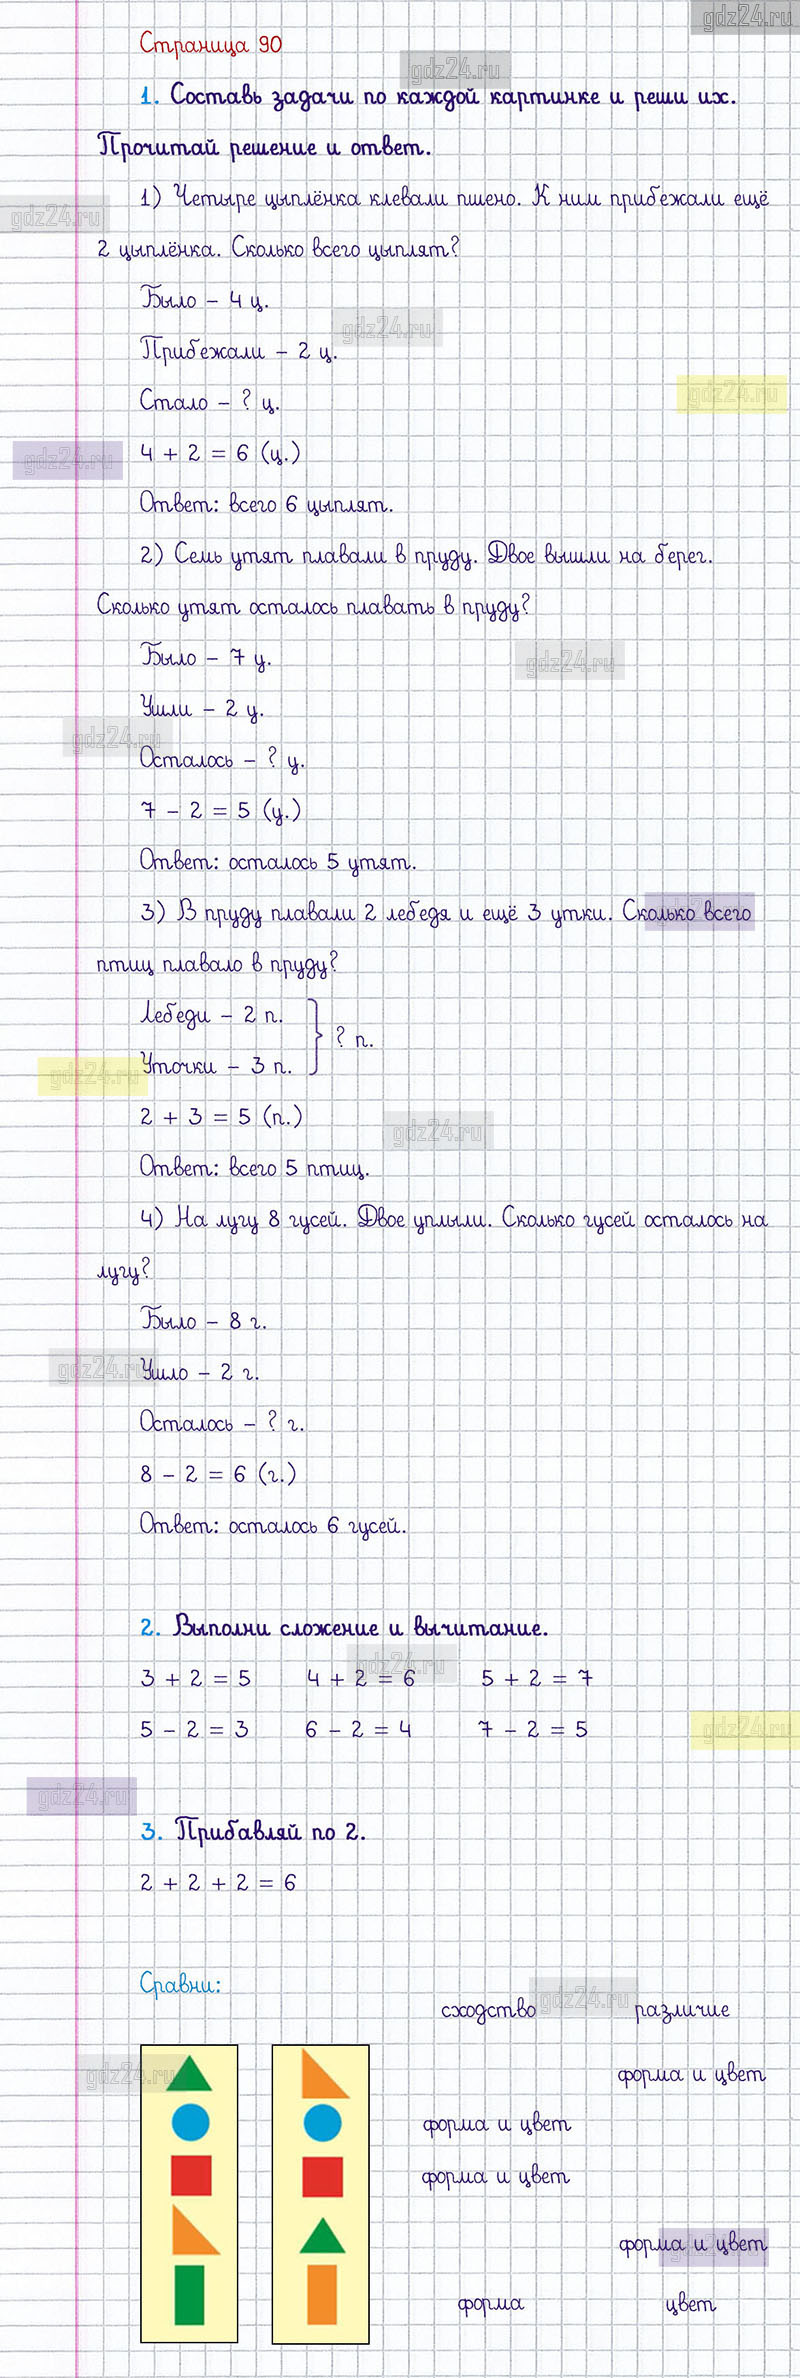 gdz24.ru
Страница 90
gdz24.ru
1. Составь задачи по каждой картинке и реши их.
Прочитай решение и ответ.
1) Четыре цыплёнка клевали пшено. К ним прибежали ещё
gdz24.ru
2 цыплёнка. Сколько всего цыплят?
Было – 4 ц.
gdz24.ru
Прибежали – 2 ц.
gdz24.ru
Стало – ? ц.
gdz24.ru
4 + 2 = 6 (ц.)
Ответ: всего 6 цыплят.
2) Семь утят плавали в пруду. Двое вышли на берег.
Сколько утят осталось плавать в пруду?
Было – 7 у.
gdz24.ru
Ушли – 2 у.
gdz24.ru
Осталось – ? у.
7 – 2 = 5 (у.)
Ответ: осталось 5 утят.
3) В пруду плавали 2 лебедя и ещё 3 утки. Сколько всего
птиц плавало в пруду?
Лебеди – 2 п.
? п.
Уточки – 3 п.
gdz24.ru
2 + 3 = 5 (п.)
gdz24.ru
Ответ: всего 5 птиц.
4) На лугу 8 гусей. Двое уплыли. Сколько гусей осталось на
лугу?
Было – 8 г.
gdz24.ru
Ушло – 2 г.
Осталось – ? г.
8 – 2 = 6 (г.)
Ответ: осталось 6 гусей.
2. Выполни сложение и вычитание.
gdz24.ru
3 + 2 = 5 4 + 2 = 6 5 + 2 = 7
5 – 2 = 3 6 – 2 = 4 7 – 2 = 5
gdz24.ru
gdz24.ru
3. Прибавляй по 2.
2 + 2 + 2 = 6
Сравни:
gdz24.ru
сходство различие
gdz24.ru
форма и цвет
форма и цвет
форма и цвет
форма и цвет
gdz24.ru
форма цвет